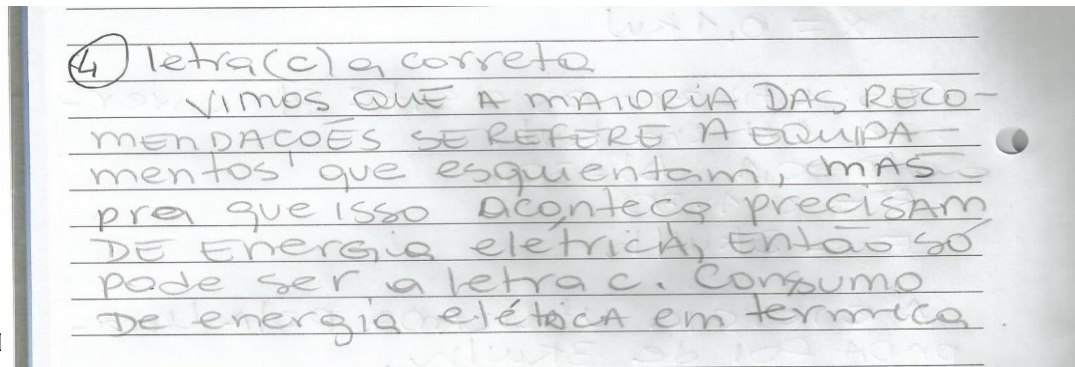 4 letra (c) a correta
VIMOS QUE A MAIORIA DAS RECO-
MENDAÇÕES SE REFERE A EQUIPA-
mentos que esquentam, MAS
pra que isso aconteça precisAm
DE Energia elétricA, Então só
pode ser a letra c. Consumo
De energia elétricA em termica